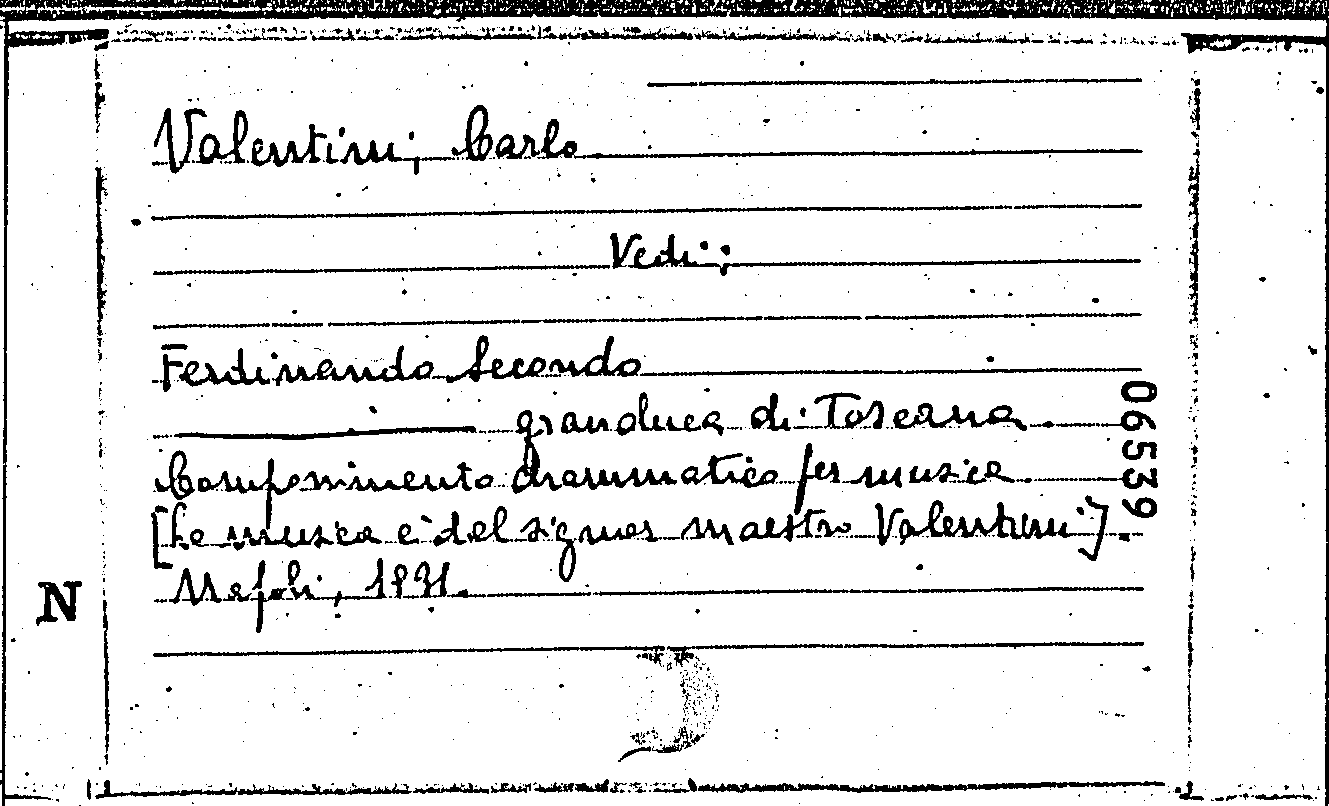 Valentini, Carlo
Vedi:
Ferdinando Secondo
granduca di Toscana.
Componimento drammatico per musica.
[La musica è del signor maestro Valentini].
Napoli, 1831.
06539
N